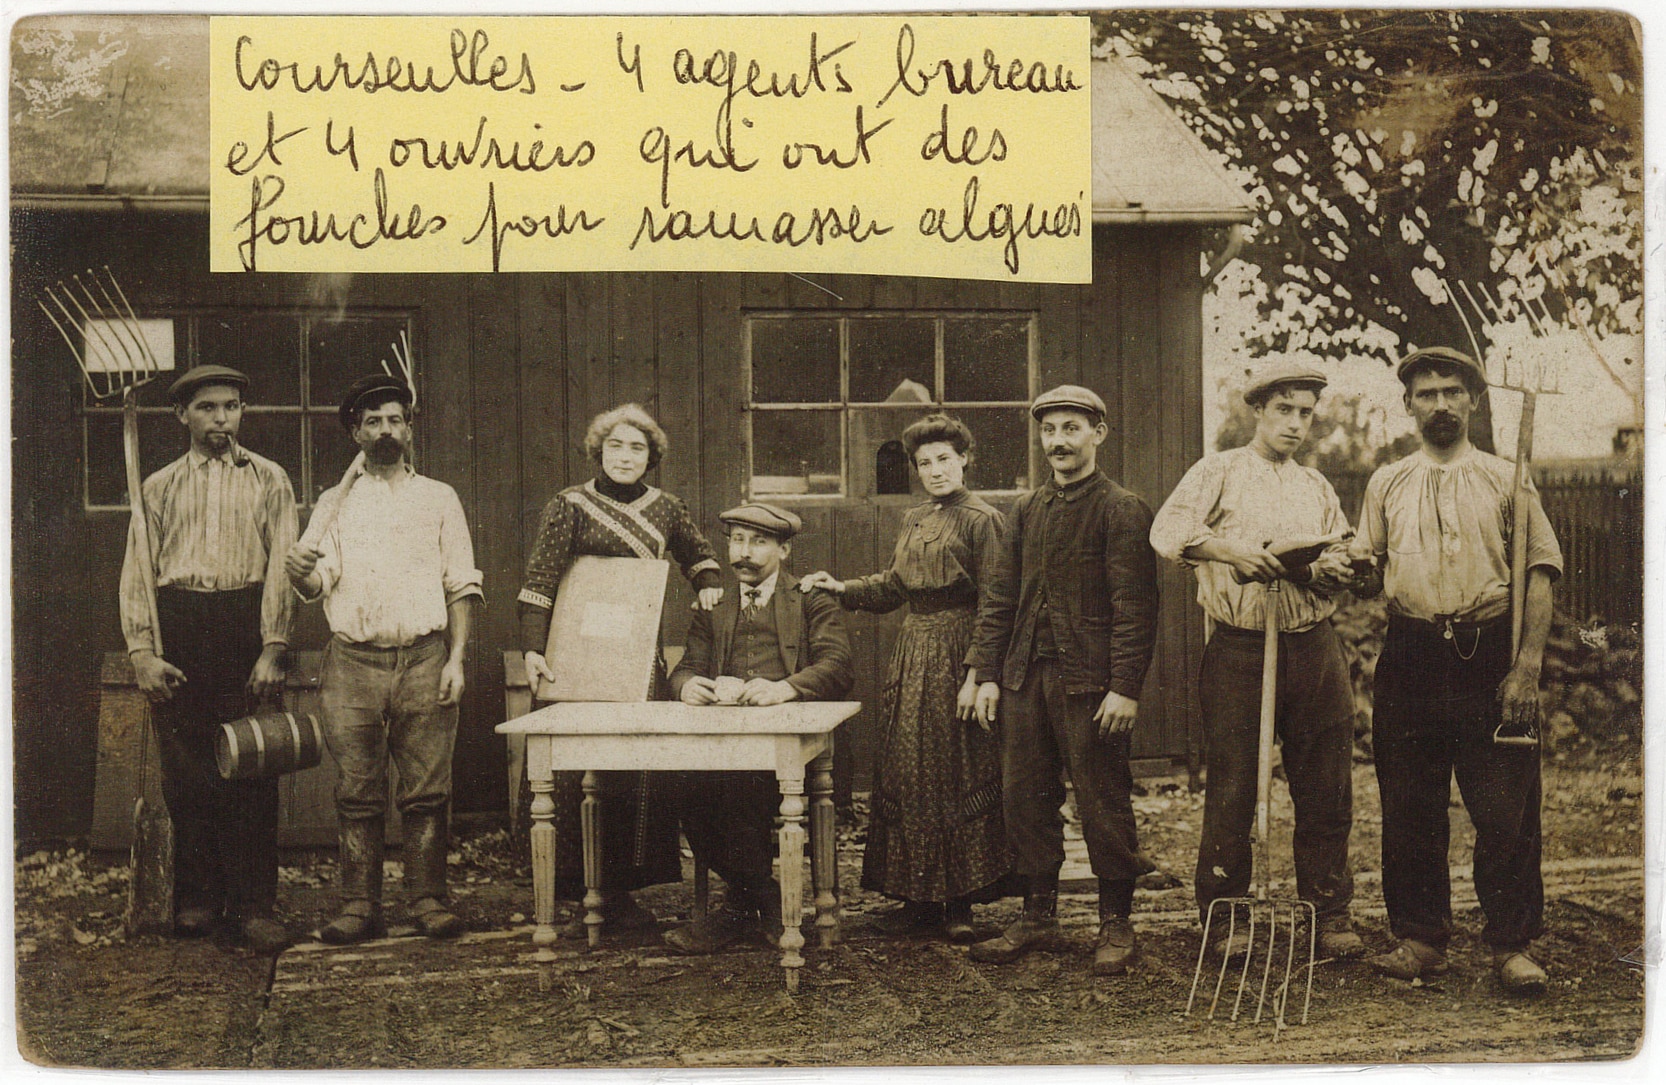 Courseulles - 4 agents bureau
et 4 ouvriers qui ont des
fourches pour ramasser algues